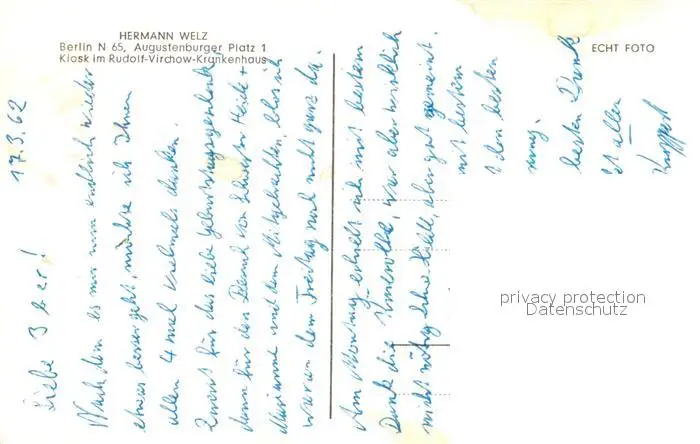 HERMANN WELZ
Berlin N 65, Augustenburger Platz 1
Kiosk im Rudolf-Virchow-Krankenhaus
ECHT FOTO
17.3.62
Liebe 3 er!
Nach dem es mir nun endlich wieder
etwas besser geht, möchte ich Ihnen
allen 4 mal vielmals danken.
Zuerst für das liebe Geburtstagsgedenken
dann für den Besuch von Schwester +
Marianne und dem Mitgebrachten, bloß ich
waren dem Freitag noch nicht ganz da.
Am Montag erhielt ich mit bestem
Dank die, war aber wirklich
nicht nötig, aber gut gemeint.
mit bestem
den besten
besten Dank
ist allen
privacy protection
Datenschutz